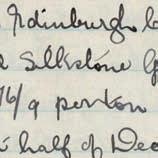 Edinburgh
Silkstone
76/9 per ton
half of Dec